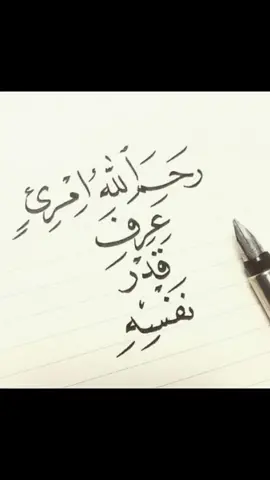 رَحِمَ ٱللهُ ٱمْرِئٍ
عَرِفَ
قَدْرَ
نَفْسِهِ